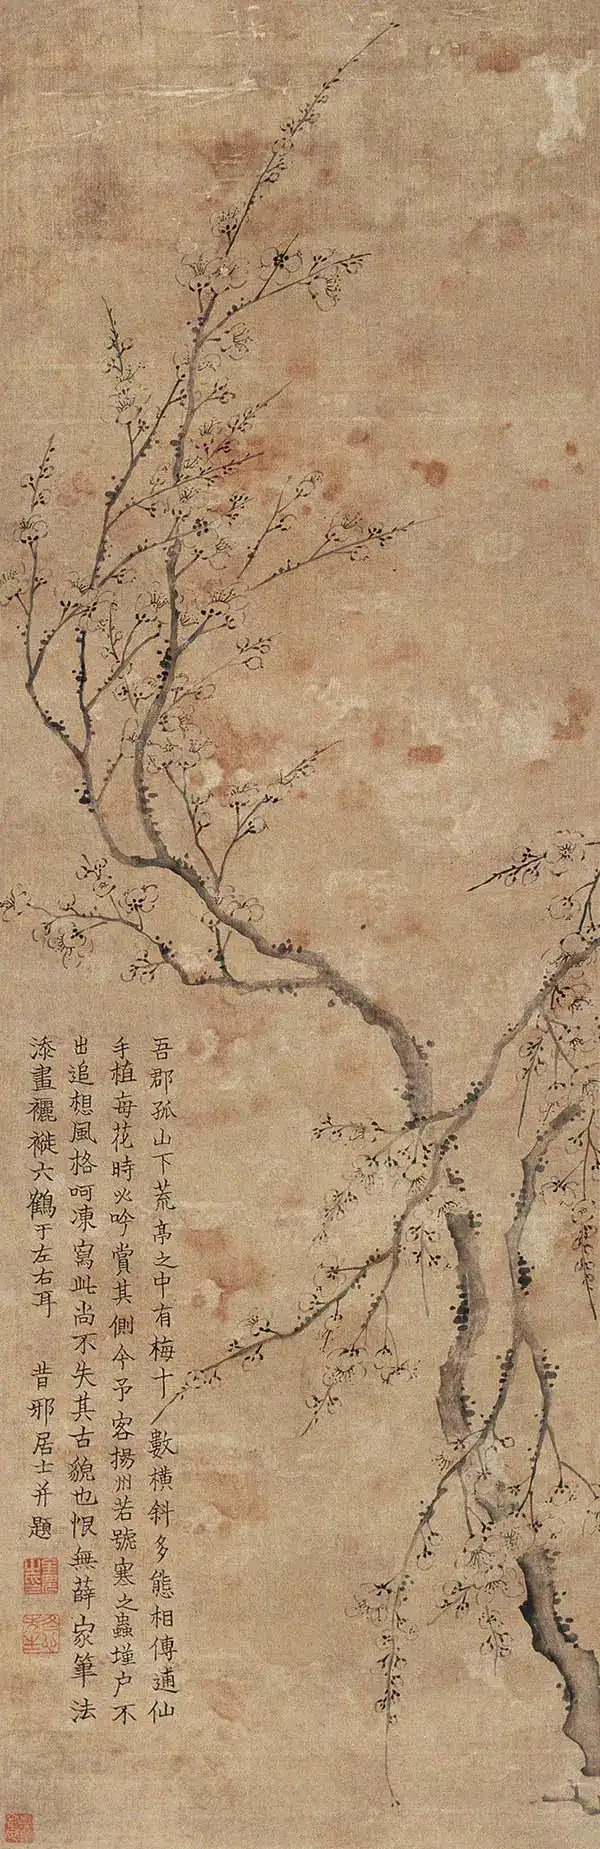 吾郡孤山下荒亭之中有梅十數橫斜多態相傳逋仙
手植每花時必吟賞其側今予客揚州若號寒之蟲墐戶不
出追想風格呵凍寫此尚不失其古貌也恨無薛家筆法
添畫褵褷六鶴于左右耳 昔邪居士并題